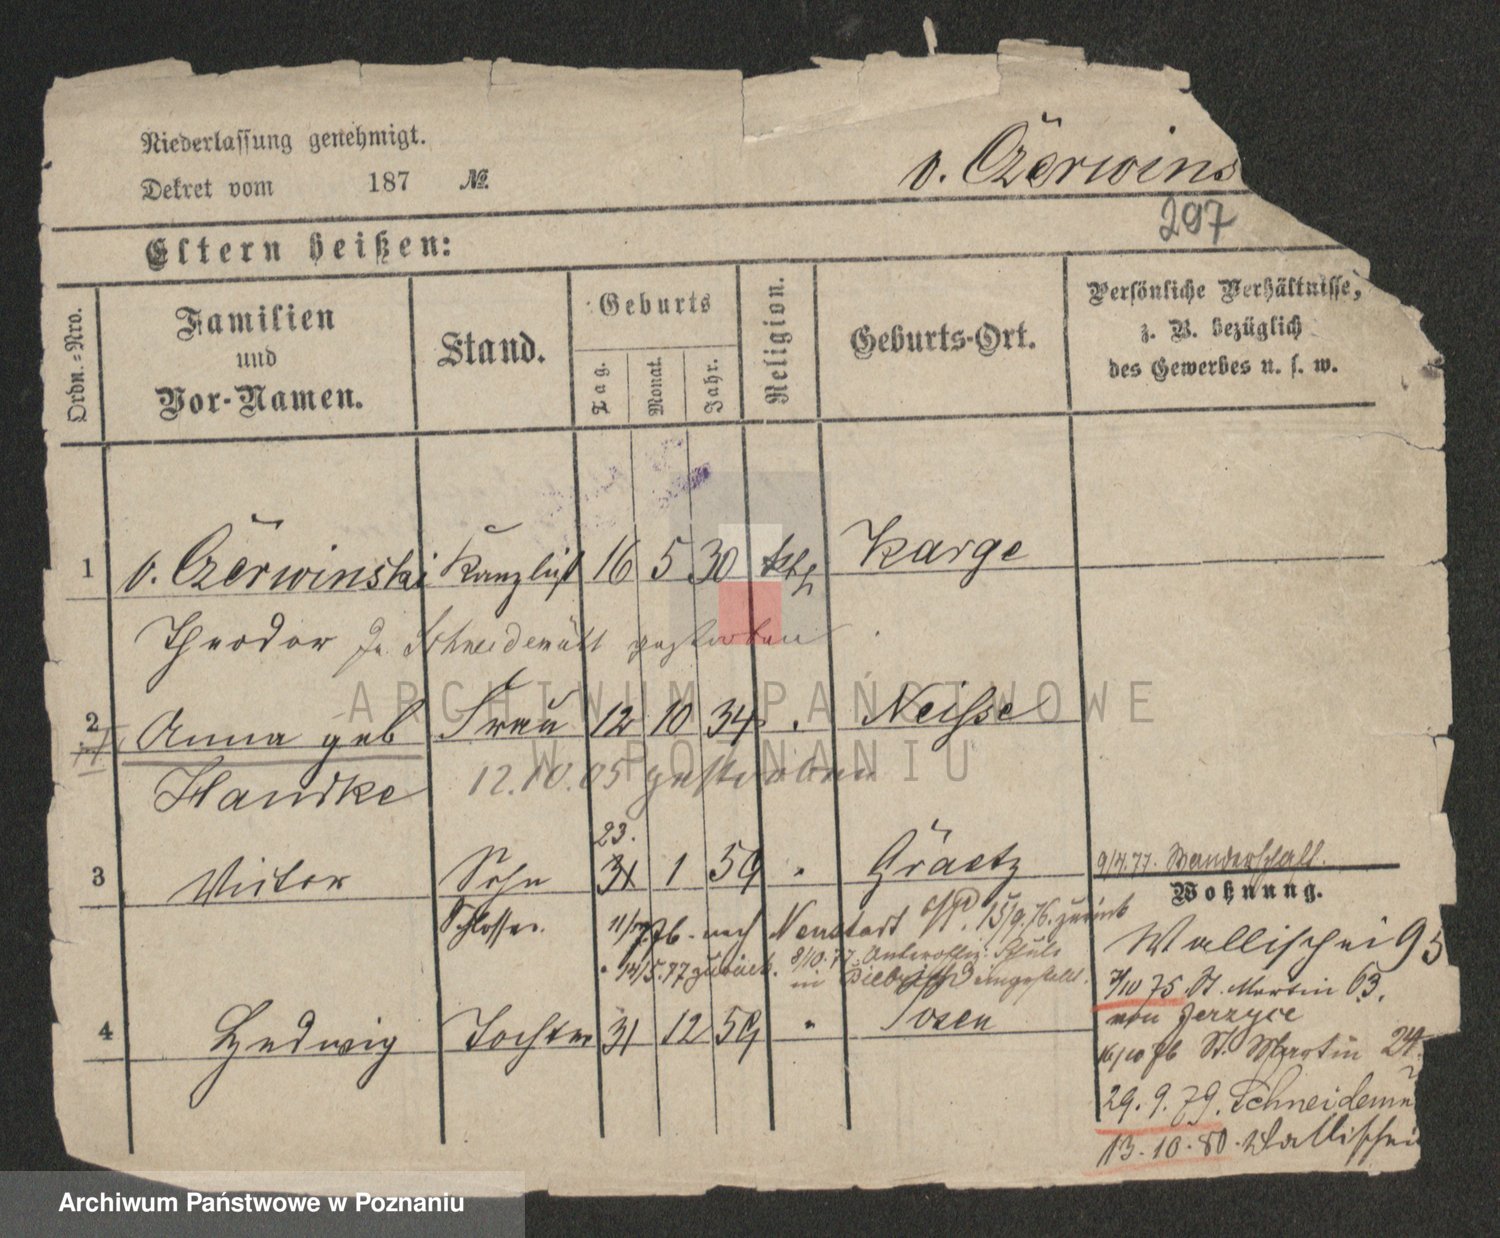 Niederlassung genehmigt.
Dekret vom 187 №
v. Czerwins
297
Eltern heißen:
Ordn.-Nro.
Familien
und
Vor-Namen.
Stand.
Geburts
Tag.
Monat.
Jahr.
Religion.
Geburts-Ort.
Persönliche Verhältnisse,
z. B. bezüglich
des Gewerbes u. s. w.
1 v. Czerwinski Kanzlist 16 5 30 kth Karge
Theodor In Schneidemühl gestorben
2 Anna geb Frau 12 10 34 " Neisse
Handke 12.10.05 gestorben
23.
3 Victor Sohn 31 1 59 " Graetz 9/4.77. Wanderschaft.
Schlosser. 11/7.76. nach Neustadt 15/9.76. zurück
14/5.77 zurück. 8/10.77. Unteroffiz. Schule
in Biebrich eingestellt.
4 Hedwig Tochter 31 12 59 " Posen
Wohnung.
Wallischei 95
7/10 75. St. Martin 63.
von Jerzyce
16/10 76 St. Martin 24.
29.9.79. Schneidemü
13.10.80. Wallischei
ARCHIWUM PAŃSTWOWE
W POZNANIU
Archiwum Państwowe w Poznaniu